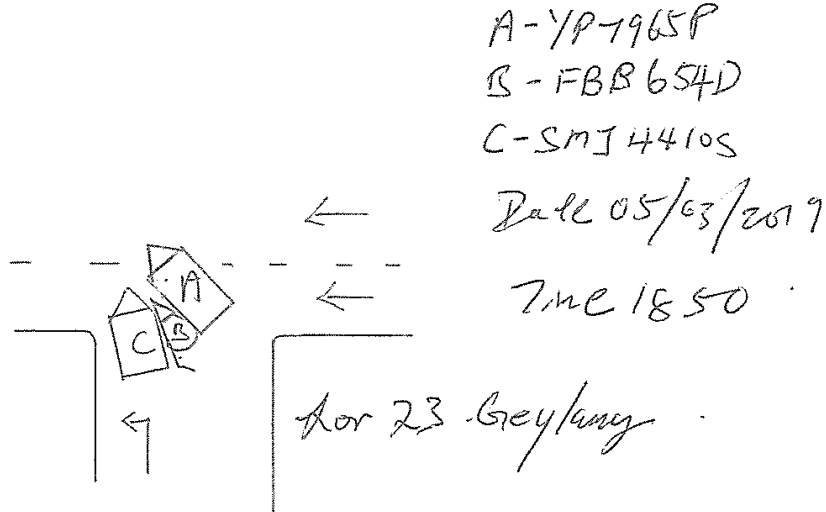 A - YP 7965P
B - FBB 654D
C - SMJ 4410S
Date 05/03/2019
Time 1850
A
B
C
Lor 23 Geylang